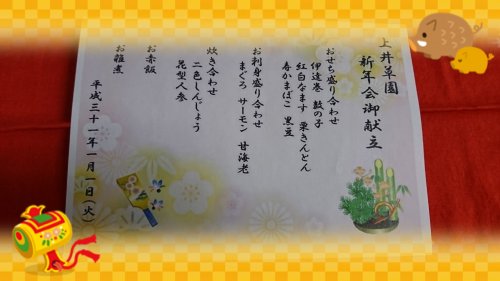 上井草園
新年会御献立
おせち盛り合わせ
伊達巻 数の子
紅白なます 栗きんとん
寿かまぼこ 黒豆
お刺身盛り合わせ
まぐろ サーモン 甘海老
炊き合わせ
二色しんじょう
花型人参
お赤飯
お雑煮
平成三十一年一月一日(火)